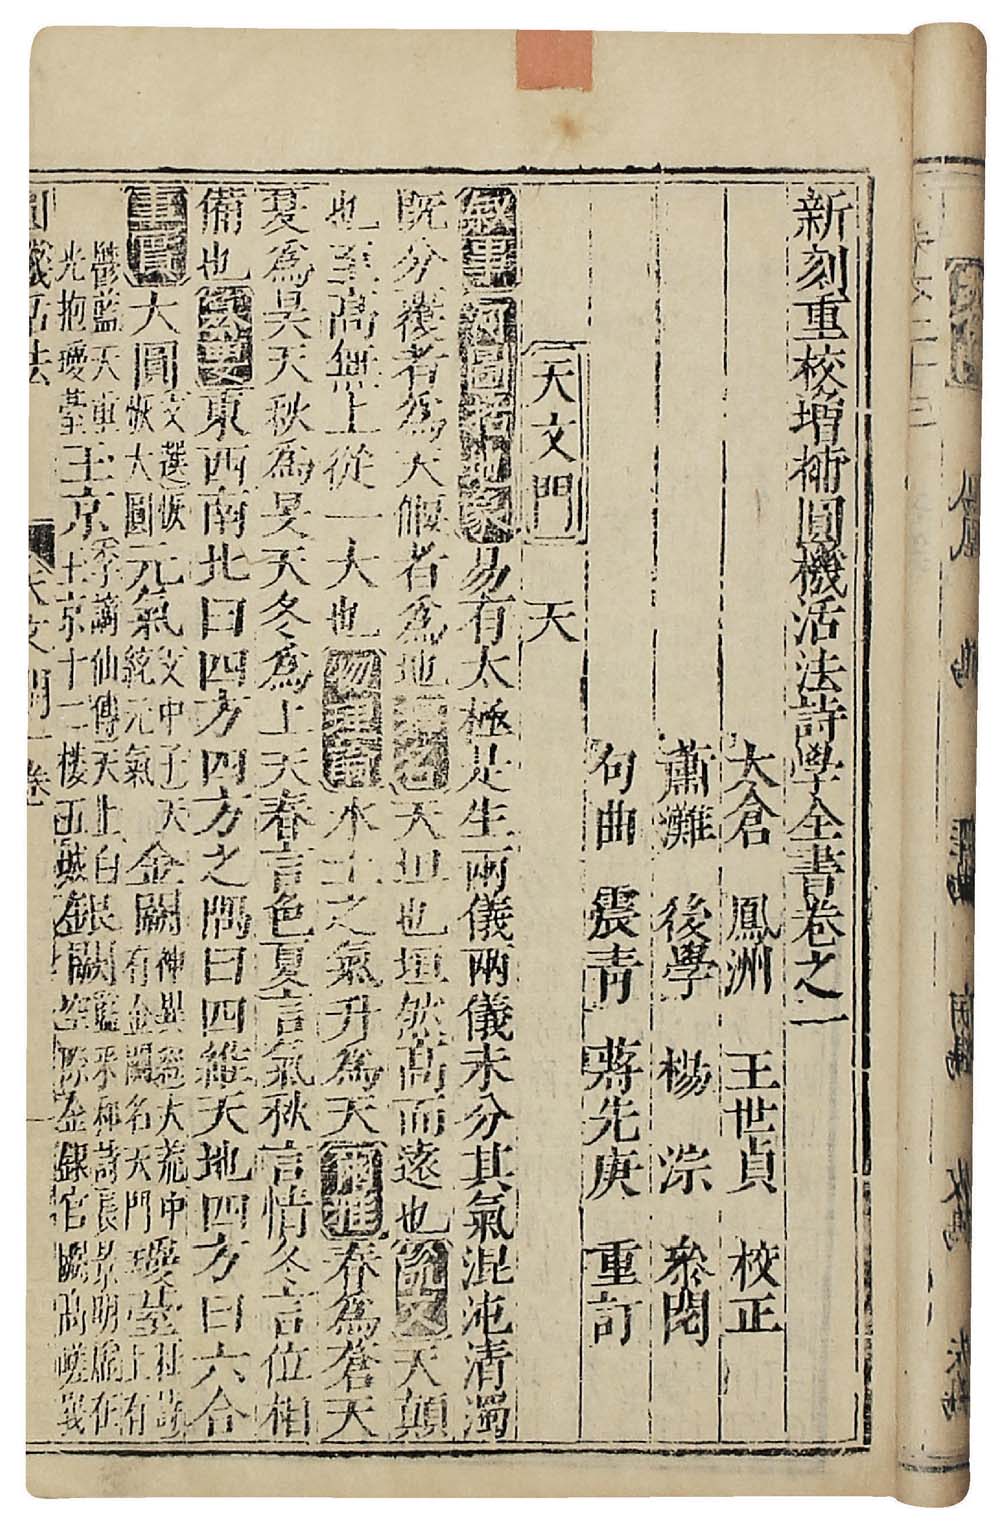 新刻重校增補圓機活法詩學全書卷之一
太倉 鳳洲 王世貞 校正
蕭灘 後學 楊淙 叅閱
句曲 震青 蔣先庚 重訂
天文門 天
敘事 河圖括地象 易有太極是生兩儀兩儀未分其氣混沌清濁
既分覆者為天偃者為地 釋名 天坦也坦然高而遠也 說文 天顛
也至高無上從一大也 物理論 水土之氣升為天 爾雅 春為蒼天
夏為昊天秋為旻天冬為上天春言色夏言氣秋言情冬言位相
備也 東西南北曰四方四方之隅曰四維天地四方曰六合
大圓 文選恢恢大圓 元氣 文中子天統元氣 金闕 神異經大荒中有金闕名天門 瓊臺 杜詩上有
鬱藍天垂光抱瓊臺 玉京 十二樓五城 銀闕
圓機活法 天文門一卷